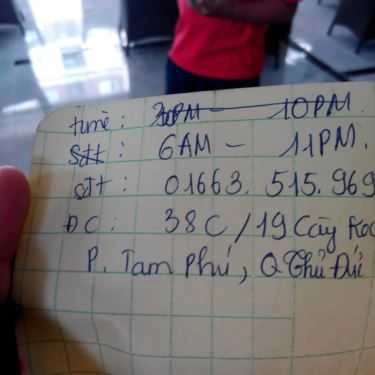 time: — 10PM.
Stt: 6AM - 11PM.
Stt: 01663.515.969
ĐC: 38C/19 Cây
P. Tam Phú, Q Thủ Đức